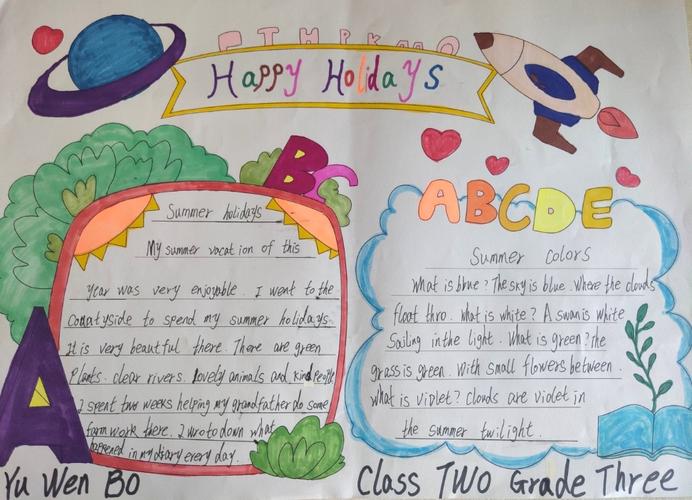 E T H P K M O
Happy Holidays
BC
Summer holidays
My summer vocation of this
year was very enjoyable. I went to the
Comatyside to spend my summer holidays.
It is very beautful there. There are green
Plants. clear rivers. lovely animals and kind people
I spent two weeks helping my grandfather do some
farm work there. I wroto down what
happened in my diary every day.
A
ABCDE
Summer colors
What is brue? The sky is blue. Where the clouds
float thro. what is white? A swan is white
Sailing in the light. What is green? the
grass is green. With small flowers between.
what is violet? Clouds are violet in
the summer twilight.
Yu Wen Bo
Class TWO Grade Three